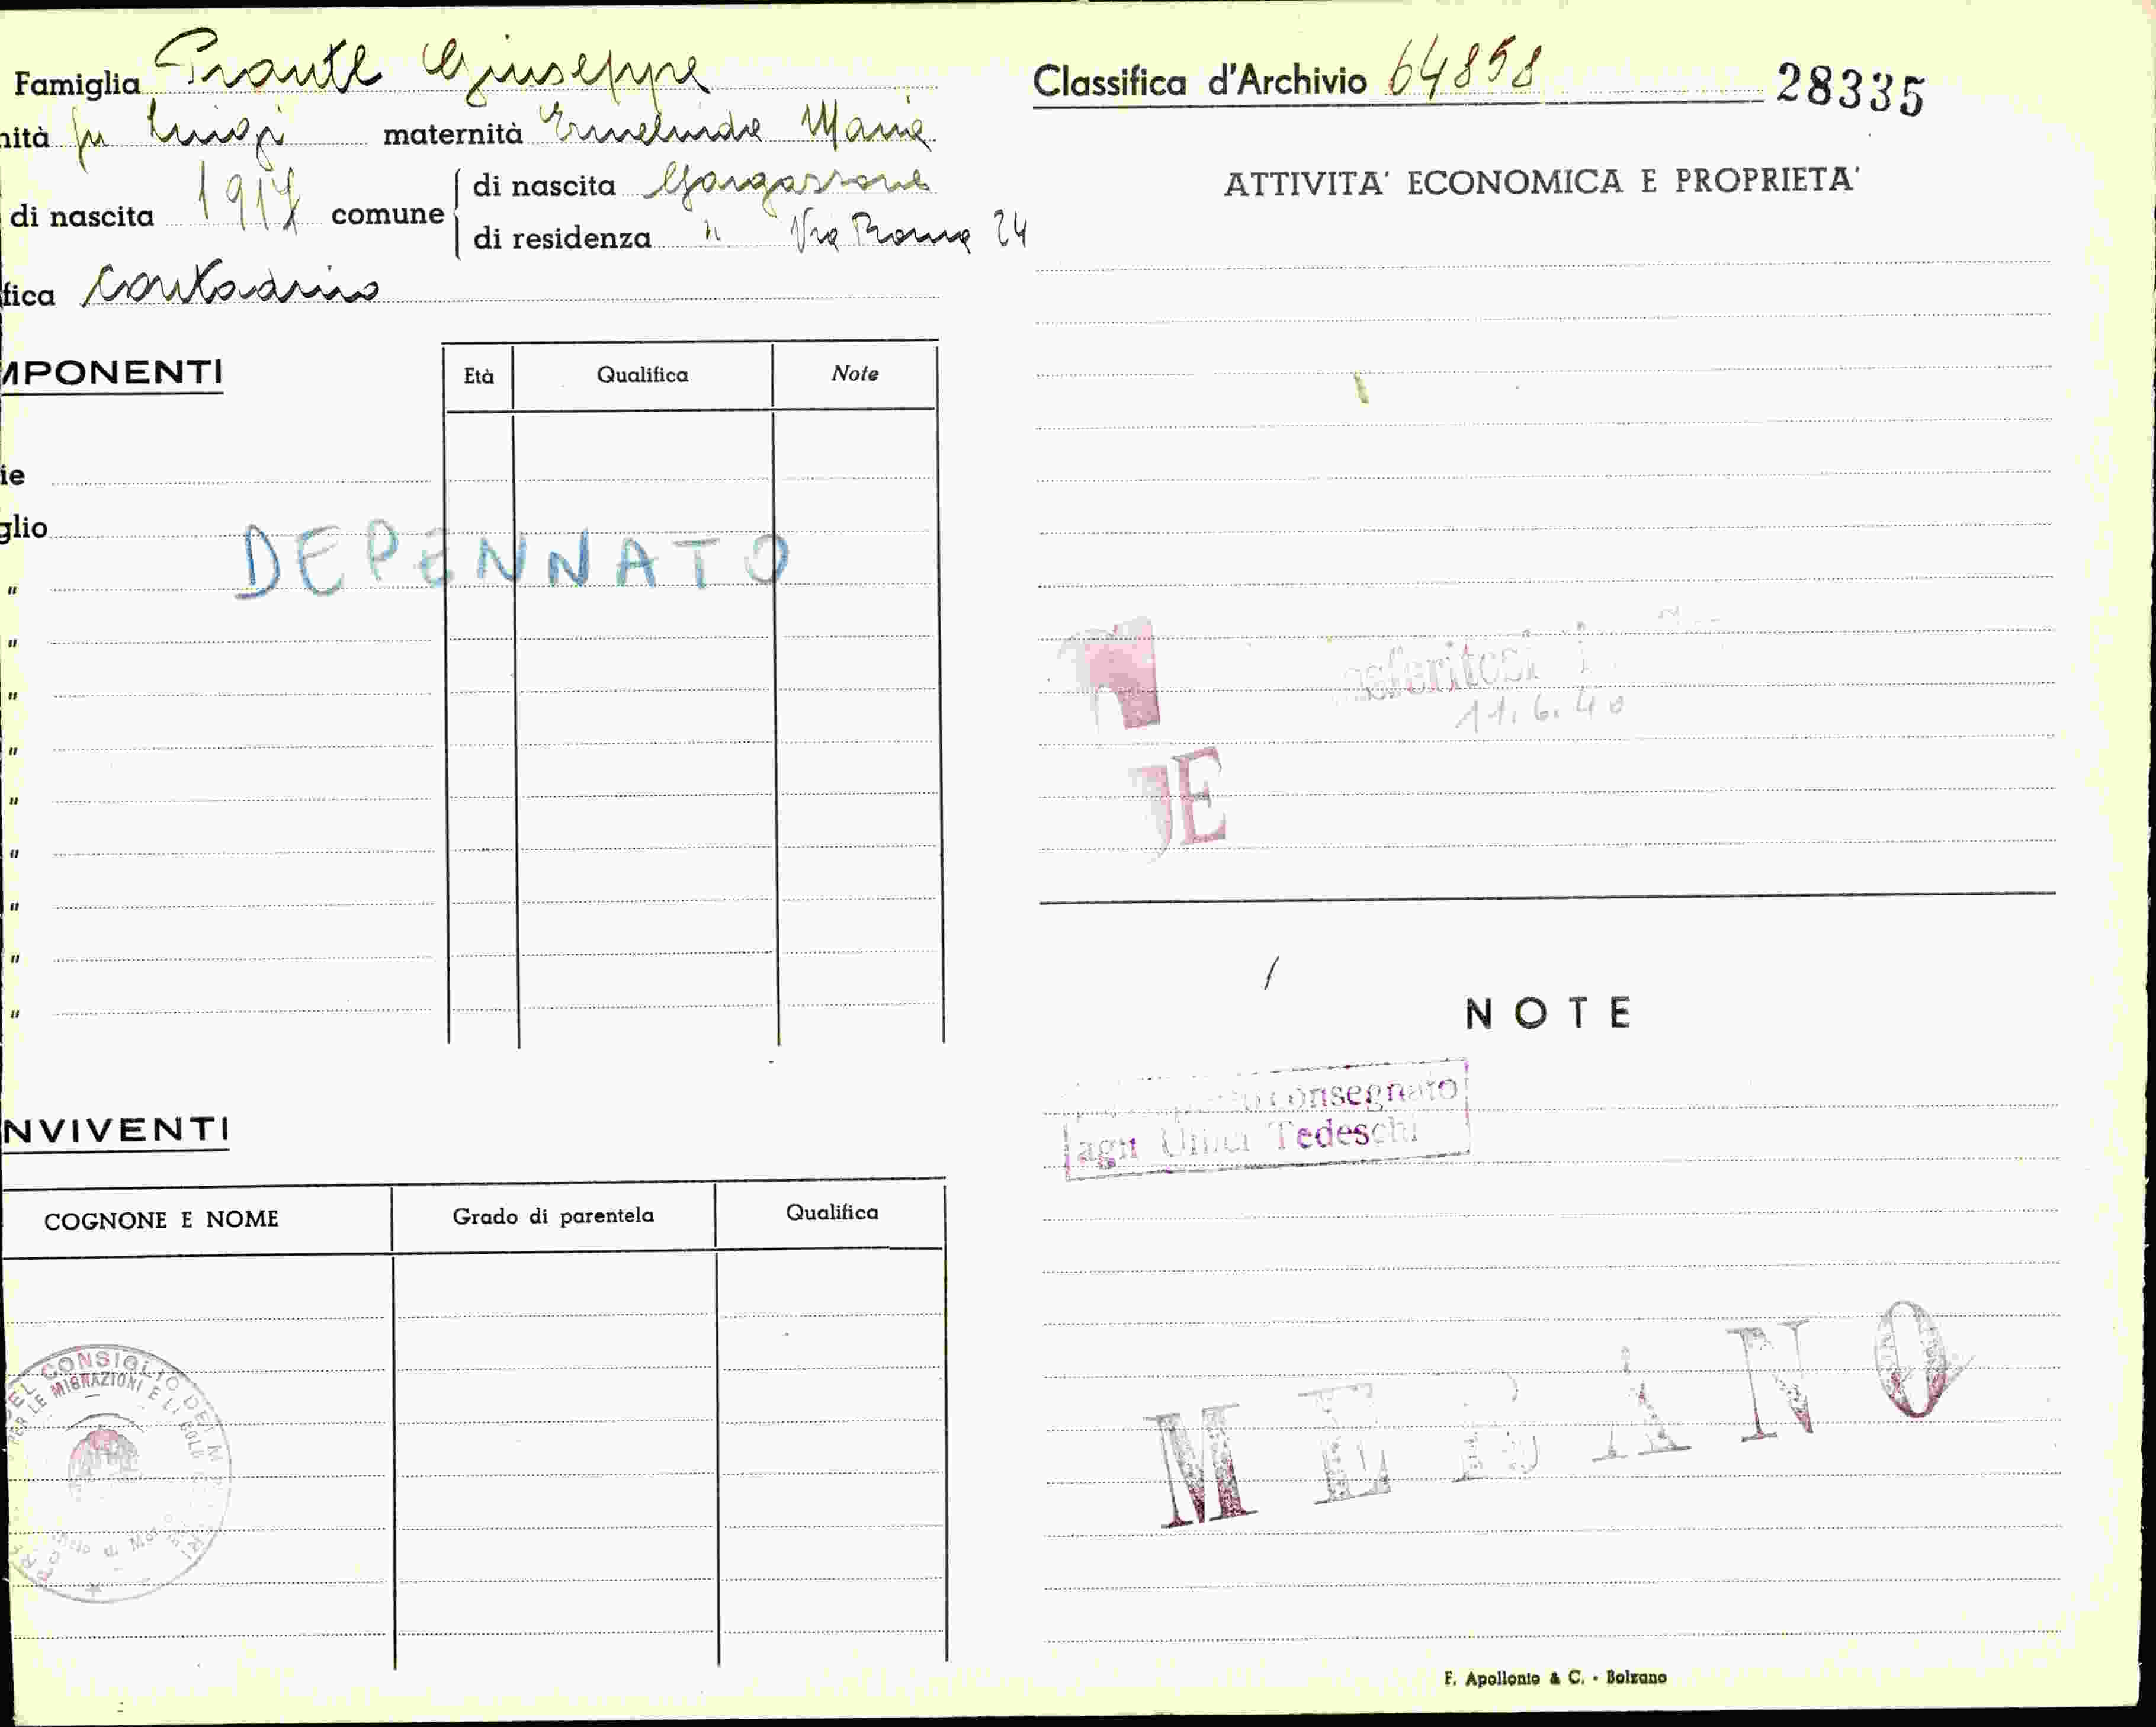 Famiglia Prantl Giuseppe
nità fu Luigi maternità Ermelinda Maria
di nascita 1917 comune di nascita Gargazzone
di residenza " Via Roma 24
fica Contadino
MPONENTI
Età Qualifica Note
ie
glio
DEPENNATO
"
"
"
"
"
"
"
"
"
NVIVENTI
COGNONE E NOME Grado di parentela Qualifica
EL CONSIGLIO DEI M
PER LE MIGRAZIONI E LE
Classifica d'Archivio 64858 28335
ATTIVITA' ECONOMICA E PROPRIETA'
asferitosi i
11.6.40
E
NOTE
consegnato
agli Uffici Tedeschi
MERANO
F. Apollonio & C. - Bolzano